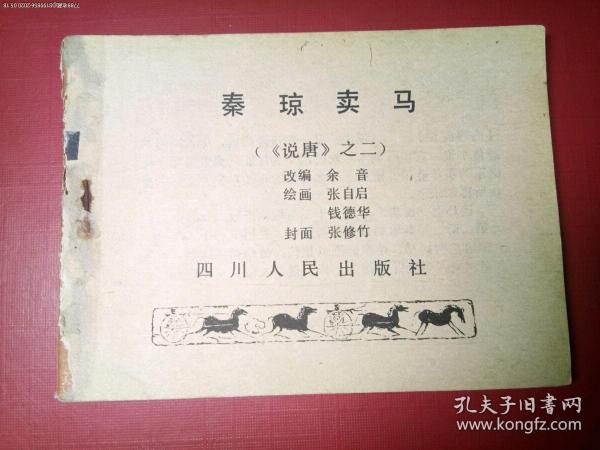 秦琼卖马
（《说唐》之二）
改编 余音
绘画 张自启
钱德华
封面 张修竹
四川人民出版社
孔夫子旧书网
www.kongfz.com